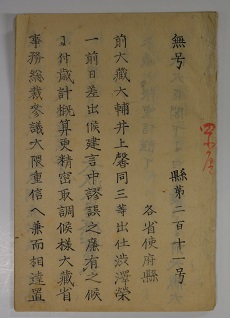 無号
縣第二百十一号
各省使府縣
前大藏大輔井上馨同三等出仕渋澤榮
一前日差出候建言中謬誤之廉有之候
ニ付歳計概算更精密取調候樣大藏省
事務総裁参議大隈重信ヘ兼而相達置